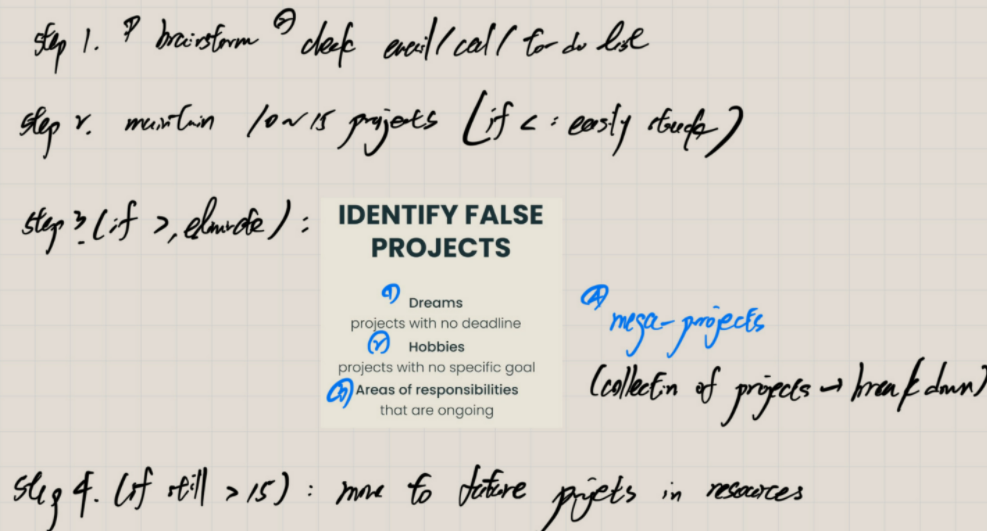 step 1. ① brainstorm ② check email / call / to do list
step 2. maintain 10~15 projects (if < : easily stuck)
step 3 (if >, eliminate) :
IDENTIFY FALSE
PROJECTS
① Dreams
projects with no deadline
② Hobbies
projects with no specific goal
③ Areas of responsibilities
that are ongoing
④ mega-projects
(collection of projects → break down)
step 4. (if still > 15) : move to future projects in resources